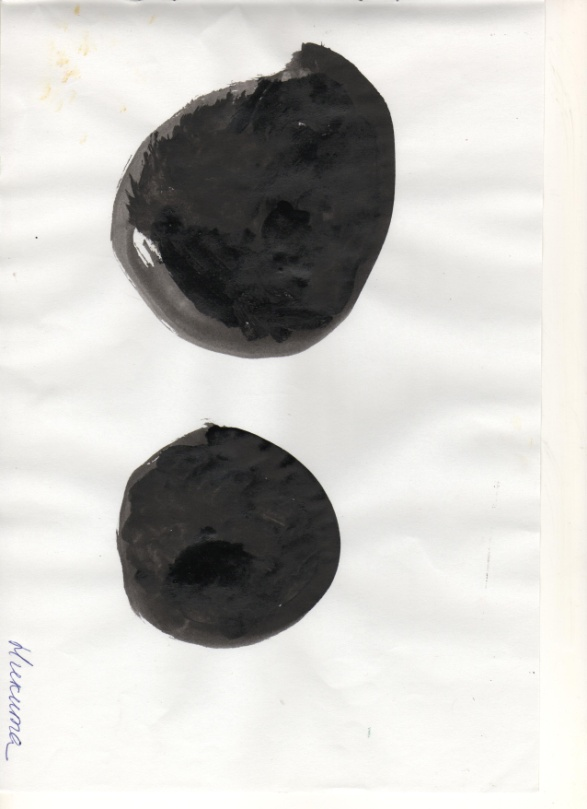 Никита